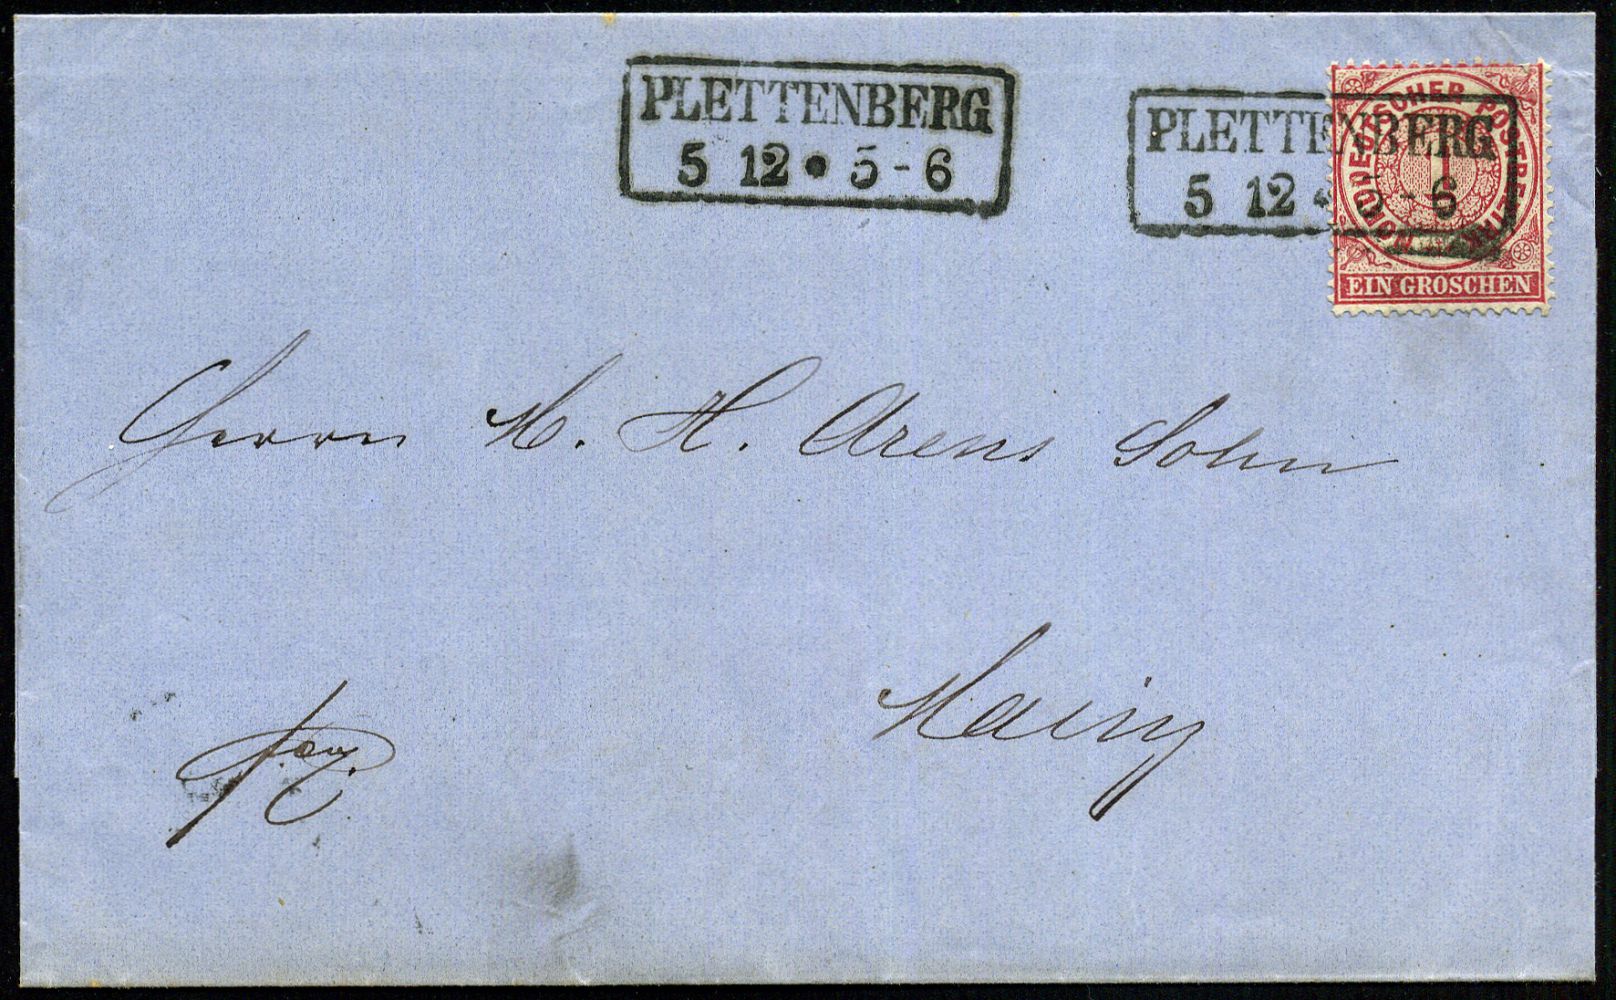 PLETTENBERG
5 12 • 5-6
PLETTENBERG
5 12 • 5-6
NORDDEUTSCHER POSTBEZIRK
1
EIN GROSCHEN
Herrn M. H. Arens Sohn
Mainz